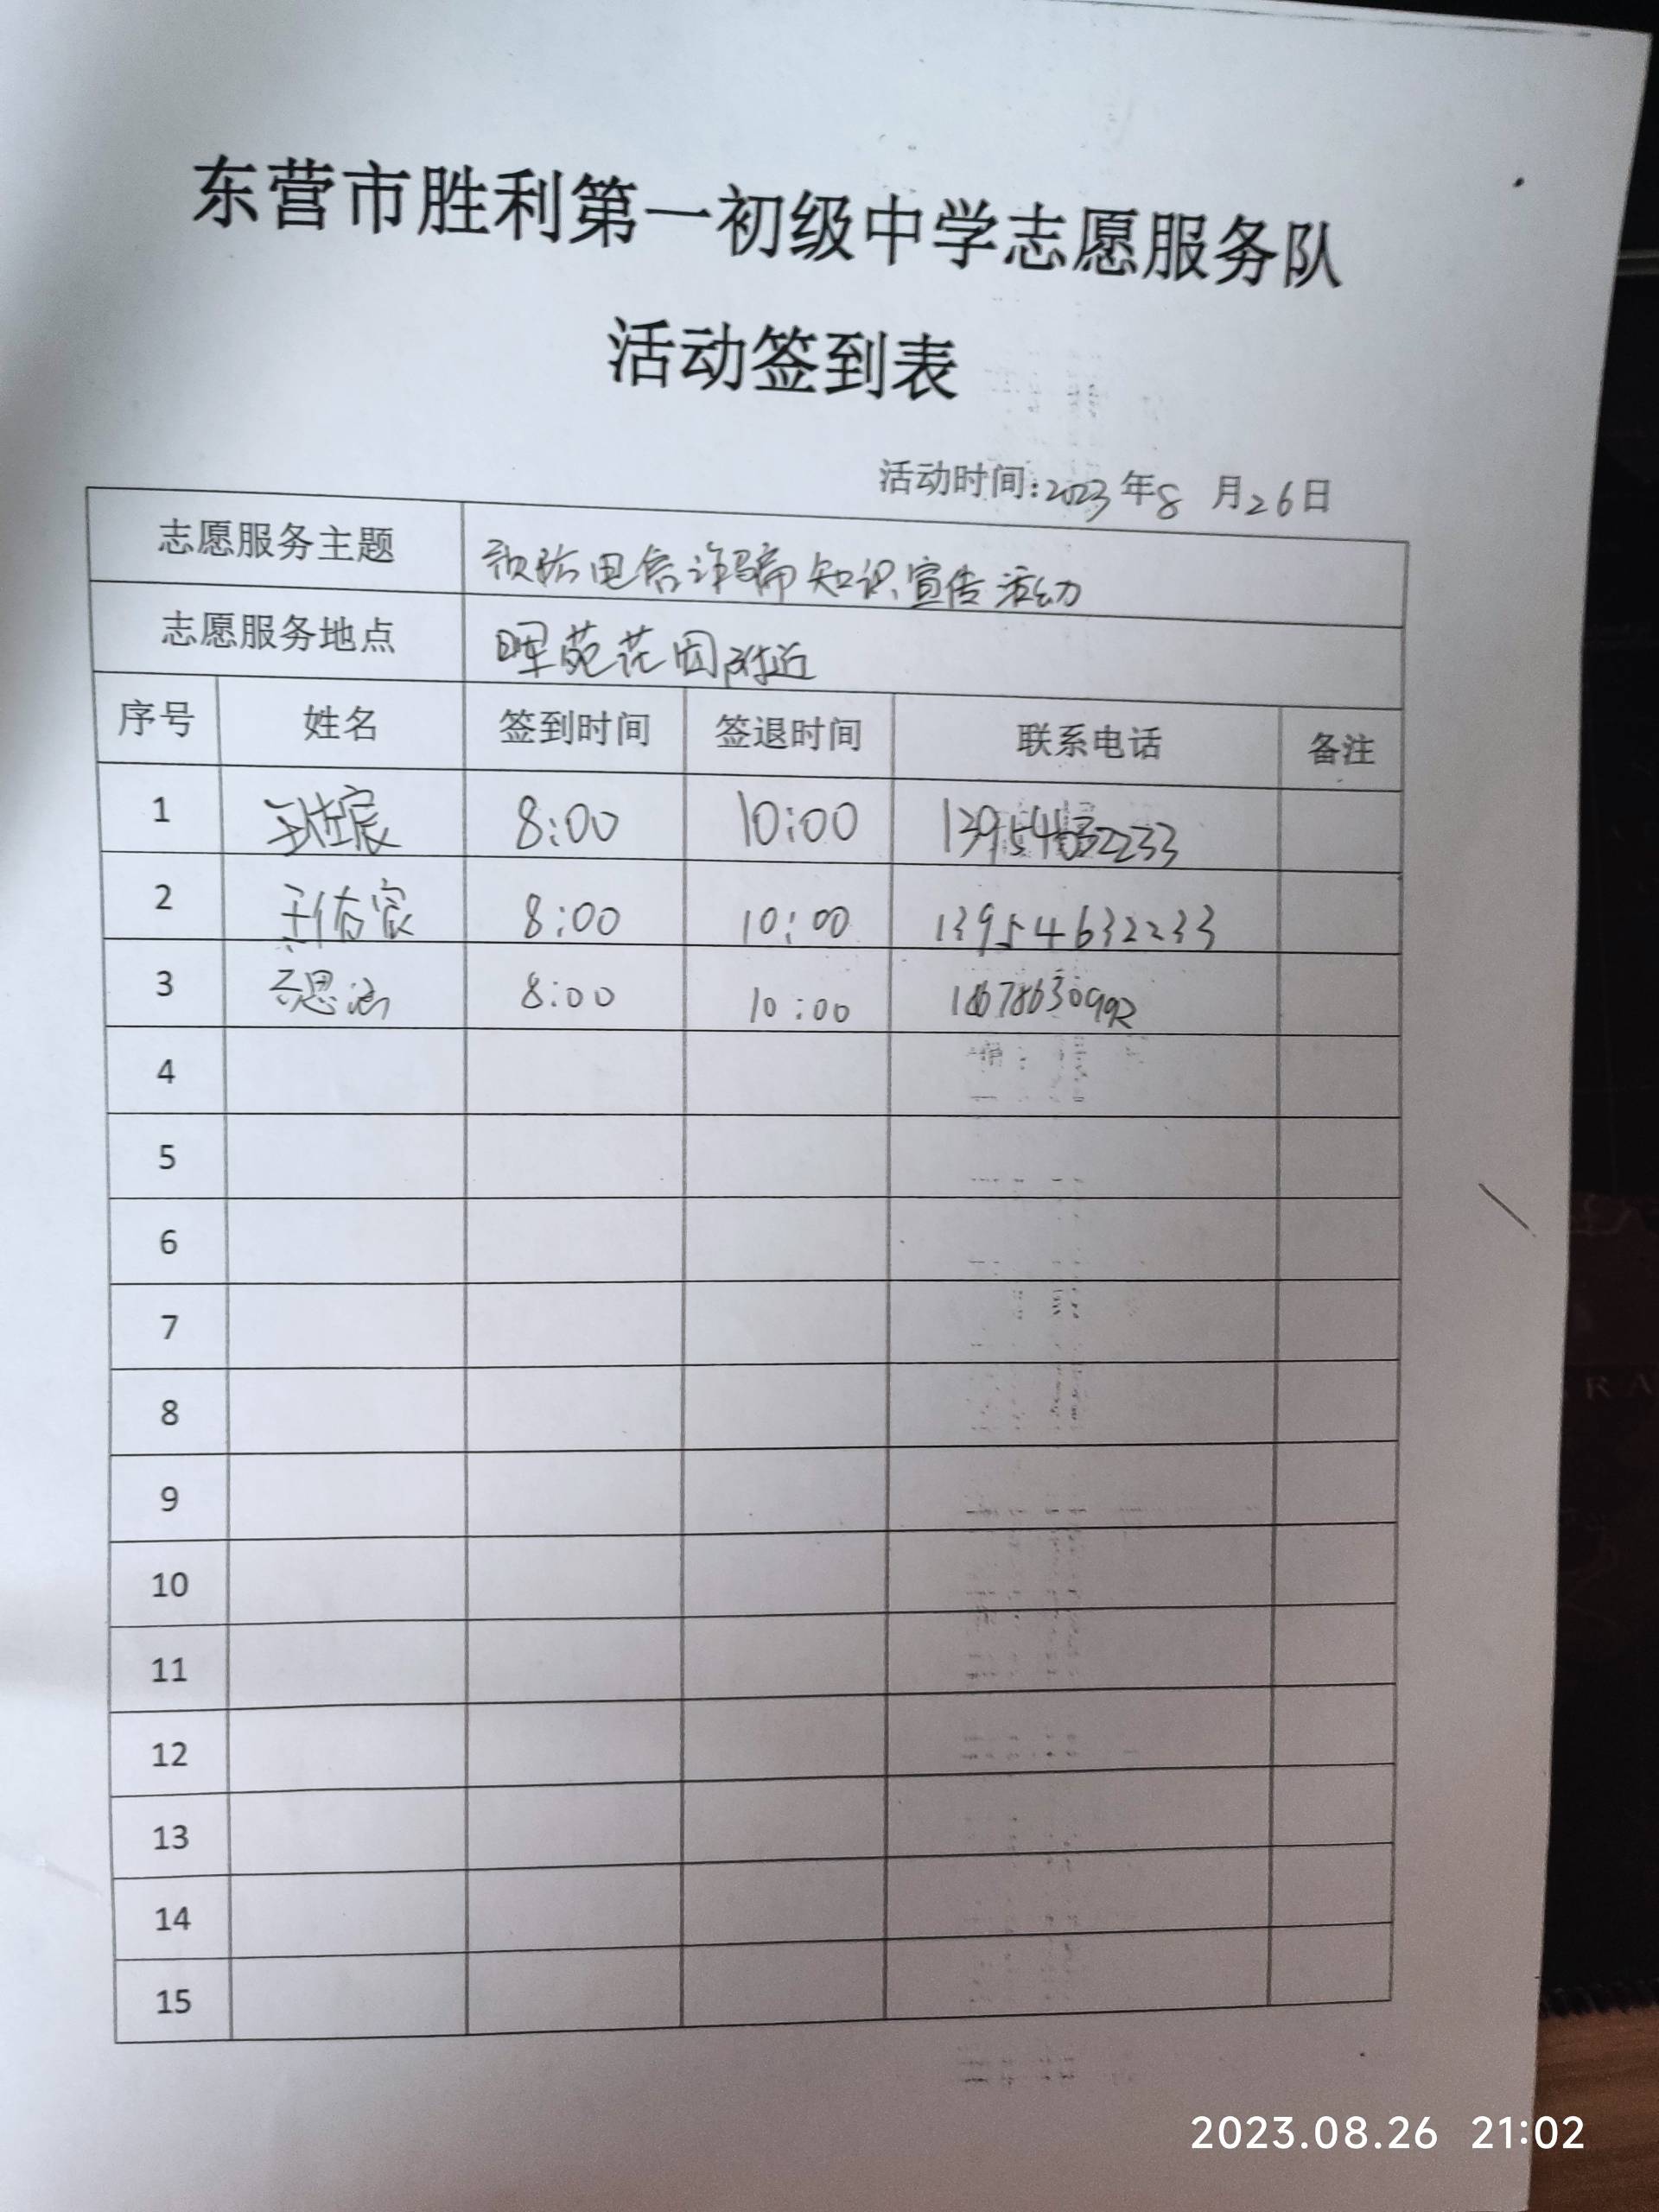 东营市胜利第一初级中学志愿服务队
活动签到表
活动时间:2023年8月26日
志愿服务主题 预防电信诈骗知识宣传活动
志愿服务地点 晖苑花园附近
序号 姓名 签到时间 签退时间 联系电话 备注
1 宸 8:00 10:00 13954632233
2 王佑宸 8:00 10:00 13954632233
3 思涵 8:00 10:00 18678630992
4
5
6
7
8
9
10
11
12
13
14
15
2023.08.26 21:02